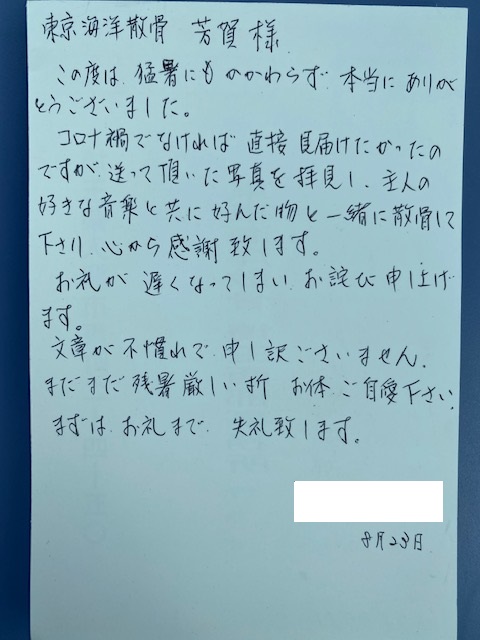 東京海洋散骨 芳賀様
この度は、猛暑にもかかわらず、本当にありが
とうございました。
コロナ禍でなければ直接見届けたかったの
ですが、送って頂いた写真を拝見し、主人の
好きな音楽と共に好んだ物と一緒に散骨して
下さり、心から感謝致します。
お礼が遅くなってしまい、お詫び申し上げ
ます。
文章が不慣れで、申し訳ございません。
まだまだ残暑厳しい折、お体、ご自愛下さい。
まずは、お礼まで、失礼致します。
8月23日